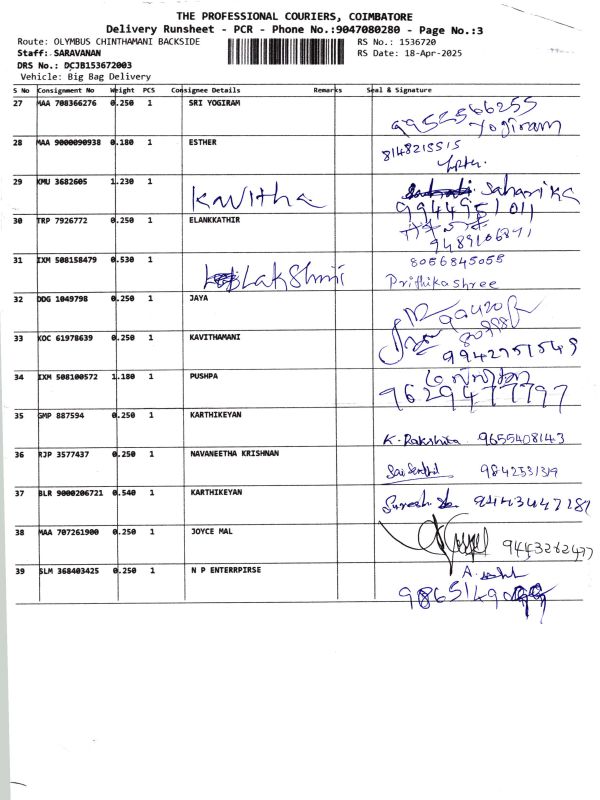 THE PROFESSIONAL COURIERS, COIMBATORE
Delivery Runsheet - PCR - Phone No.:9047080280 - Page No.:3
Route: OLYMBUS CHINTHAMANI BACKSIDE RS No.: 1536720
Staff: SARAVANAN RS Date: 18-Apr-2025
DRS No.: DCJB153672003
Vehicle: Big Bag Delivery
S No Consignment No Weight PCS Consignee Details Remarks Seal & Signature
27 MAA 708366276 0.250 1 SRI YOGIRAM
9952566255
Yogiram
28 MAA 9000090938 0.180 1 ESTHER
8148215515
29 KMU 3682605 1.230 1 Kavitha Saharika
9944951011
30 TRP 7926772 0.250 1 ELANKKATHIR
9489106871
31 IXM 508158479 0.530 1 LakShmi
8056845055
Prithikashree
32 DDG 1049798 0.250 1 JAYA
33 KOC 61978639 0.250 1 KAVITHAMANI
9942751549
34 IXM 508100572 1.180 1 PUSHPA
9629477797
35 GMP 887594 0.250 1 KARTHIKEYAN
K. Rakshika 9655408143
36 RJP 3577437 0.250 1 NAVANEETHA KRISHNAN
Sai Senthil 9842531319
37 BLR 9000206721 0.540 1 KARTHIKEYAN
Suresh 94443447287
38 MAA 707261900 0.250 1 JOYCE MAL
9443262477
39 SLM 368403425 0.250 1 N P ENTERRPIRSE
A.